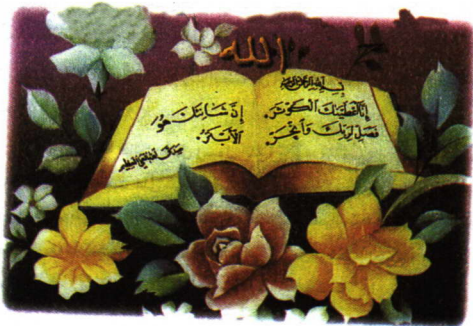 الله
بسم الله الرحمن الرحيم
إنا أعطيناك الكوثر
فصل لربك وانحر
إن شانئك هو
الأبتر
صدق الله العلي العظيم